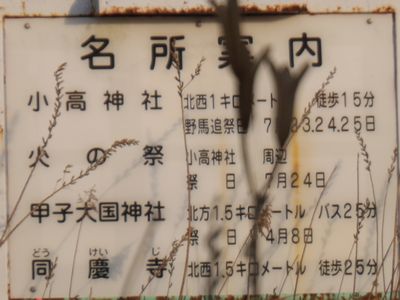 名所案内
小高神社 北西1キロメートル 徒歩15分
野馬追祭日 7月23.24.25日
火の祭 小高神社 周辺
祭 日 7月24日
甲子大国神社 北方1.5キロメートル バス25分
祭 日 4月8日
どう けい じ
同慶寺 北西1.5キロメートル 徒歩25分